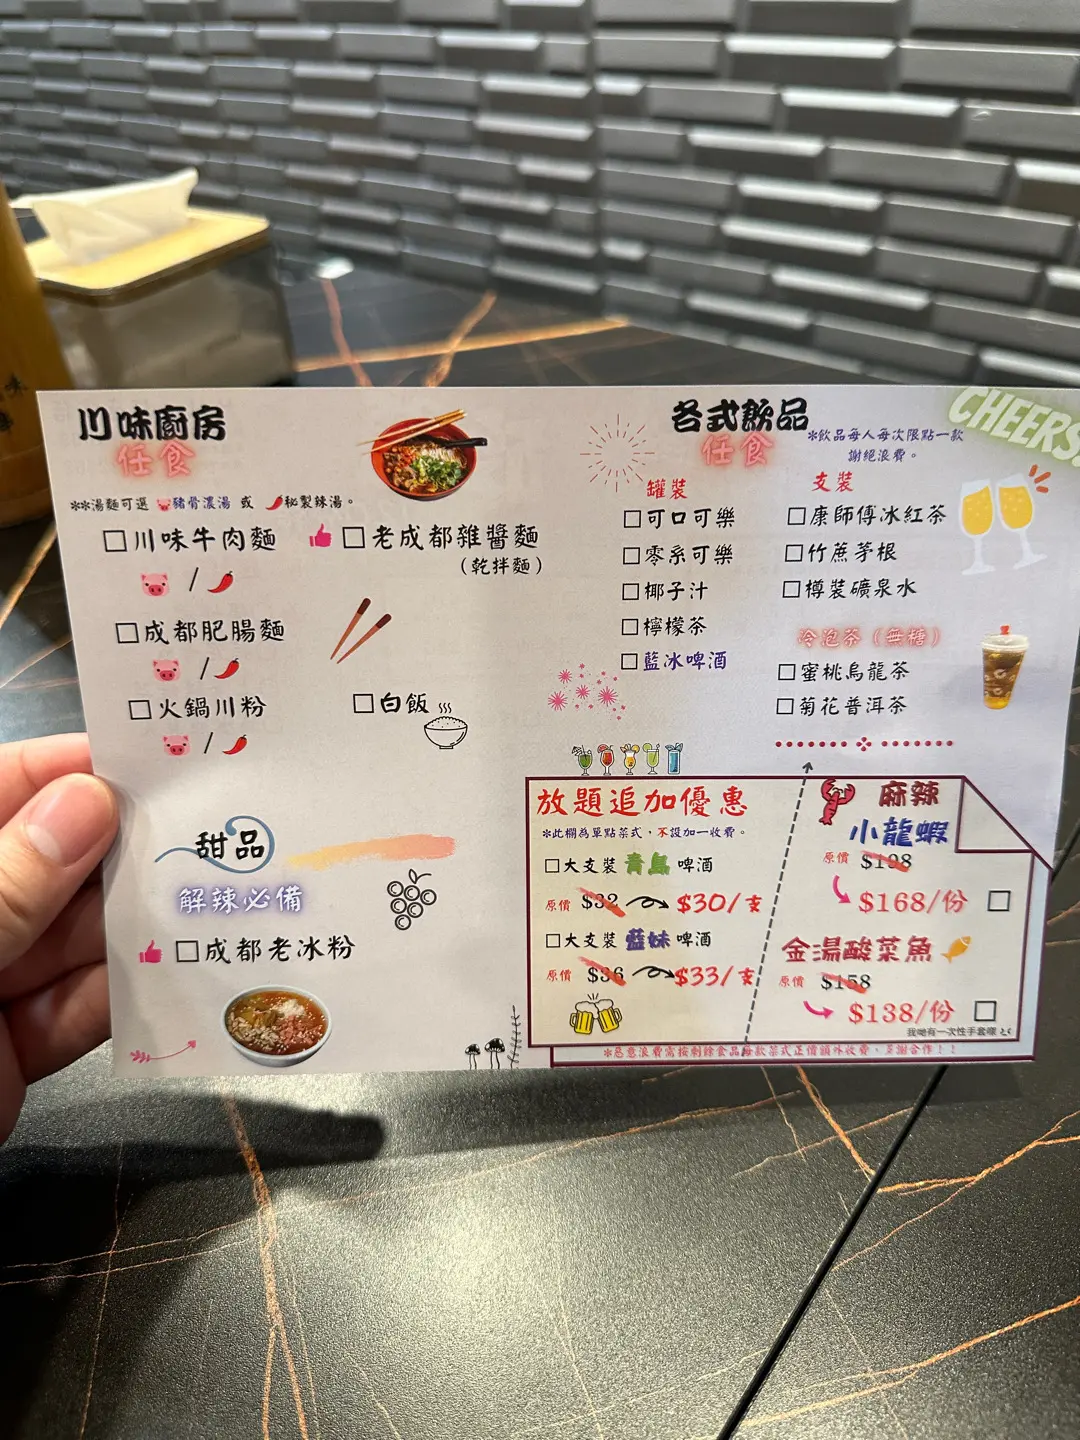 川味廚房
任食
**湯麵可選 豬骨濃湯 或 秘製辣湯。
川味牛肉麵
/
老成都雜醬麵
(乾拌麵)
成都肥腸麵
/
火鍋川粉
/
白飯
甜品
解辣必備
成都老冰粉
各式飲品
任食
*飲品每人每次限點一款
謝絕浪費。
CHEERS
罐裝
可口可樂
零系可樂
椰子汁
檸檬茶
藍冰啤酒
支裝
康師傅冰紅茶
竹蔗茅根
樽裝礦泉水
冷泡茶(無糖)
蜜桃烏龍茶
菊花普洱茶
放題追加優惠
*此欄為單點菜式,不設加一收費。
大支裝青島啤酒
原價 $32 $30/支
大支裝藍妹啤酒
原價 $36 $33/支
麻辣
小龍蝦
原價 $198
$168/份
金湯酸菜魚
原價 $158
$138/份
我哋有一次性手套㗎
*惡意浪費需按剩餘食品每款菜式正價額外收費,多謝合作!!
味